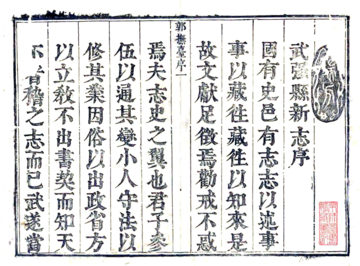 武强縣新志序
國有史邑有志志以述事
事以藏徃藏徃以知來是
故文獻足徵焉勸戒不惑
郭撫臺序一
焉夫志史之翼也君子參
伍以通其變小人守法以
修其業因俗以出政省方
以立敎不出書契而知天
下者稽之志而已武遂嘗